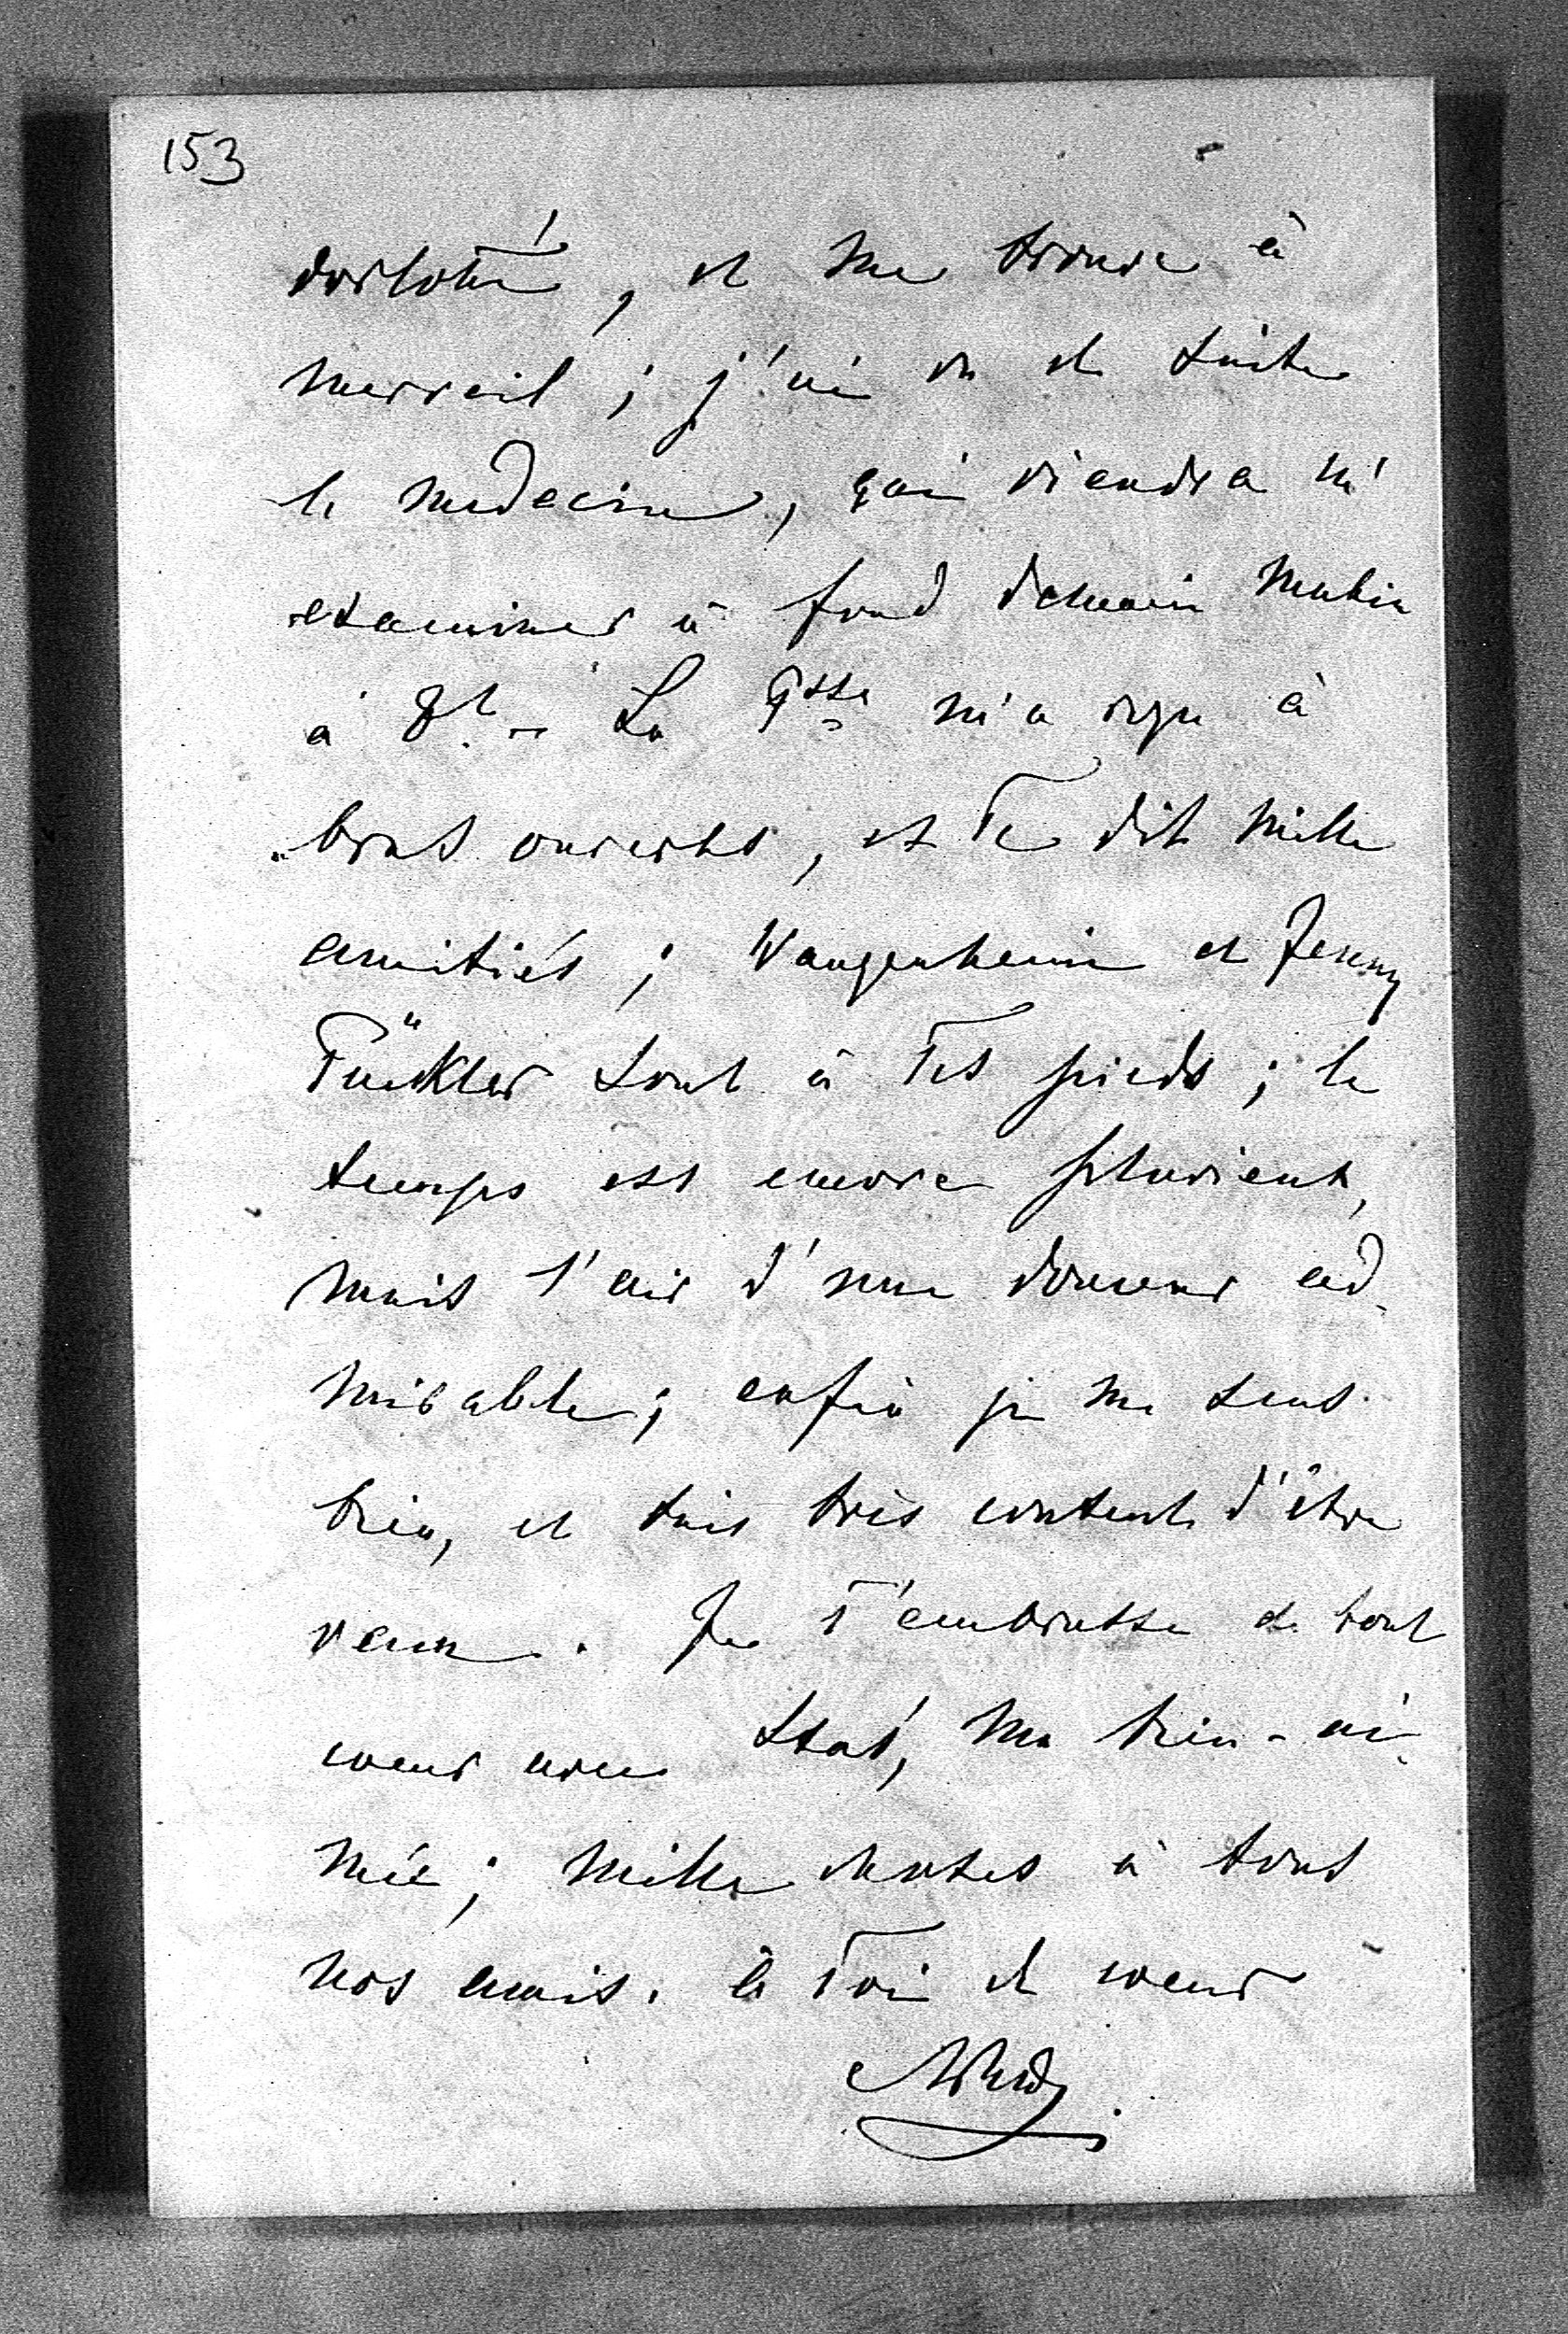 153
dorloté, et me trouve à
merveil; j'ai vu de suite
le medecin, qui viendra m'
examiner à fond demain matin
à 8h. – La Psse m'a reçu à
bras ouverts, et Te dit mille
amitiés; Wangenheim et Jenny
Pückler sont à Tes pieds; le
temps est encore pluvieux,
mais l'air d'une douceur ad-
mirable; enfin je me sens
bien, et suis très content d'être
venu. Je T'embrasse de tout
coeur avec Stas', ma bien-ai-
mée; mille choses à tous
nos amis. à Toi de coeur